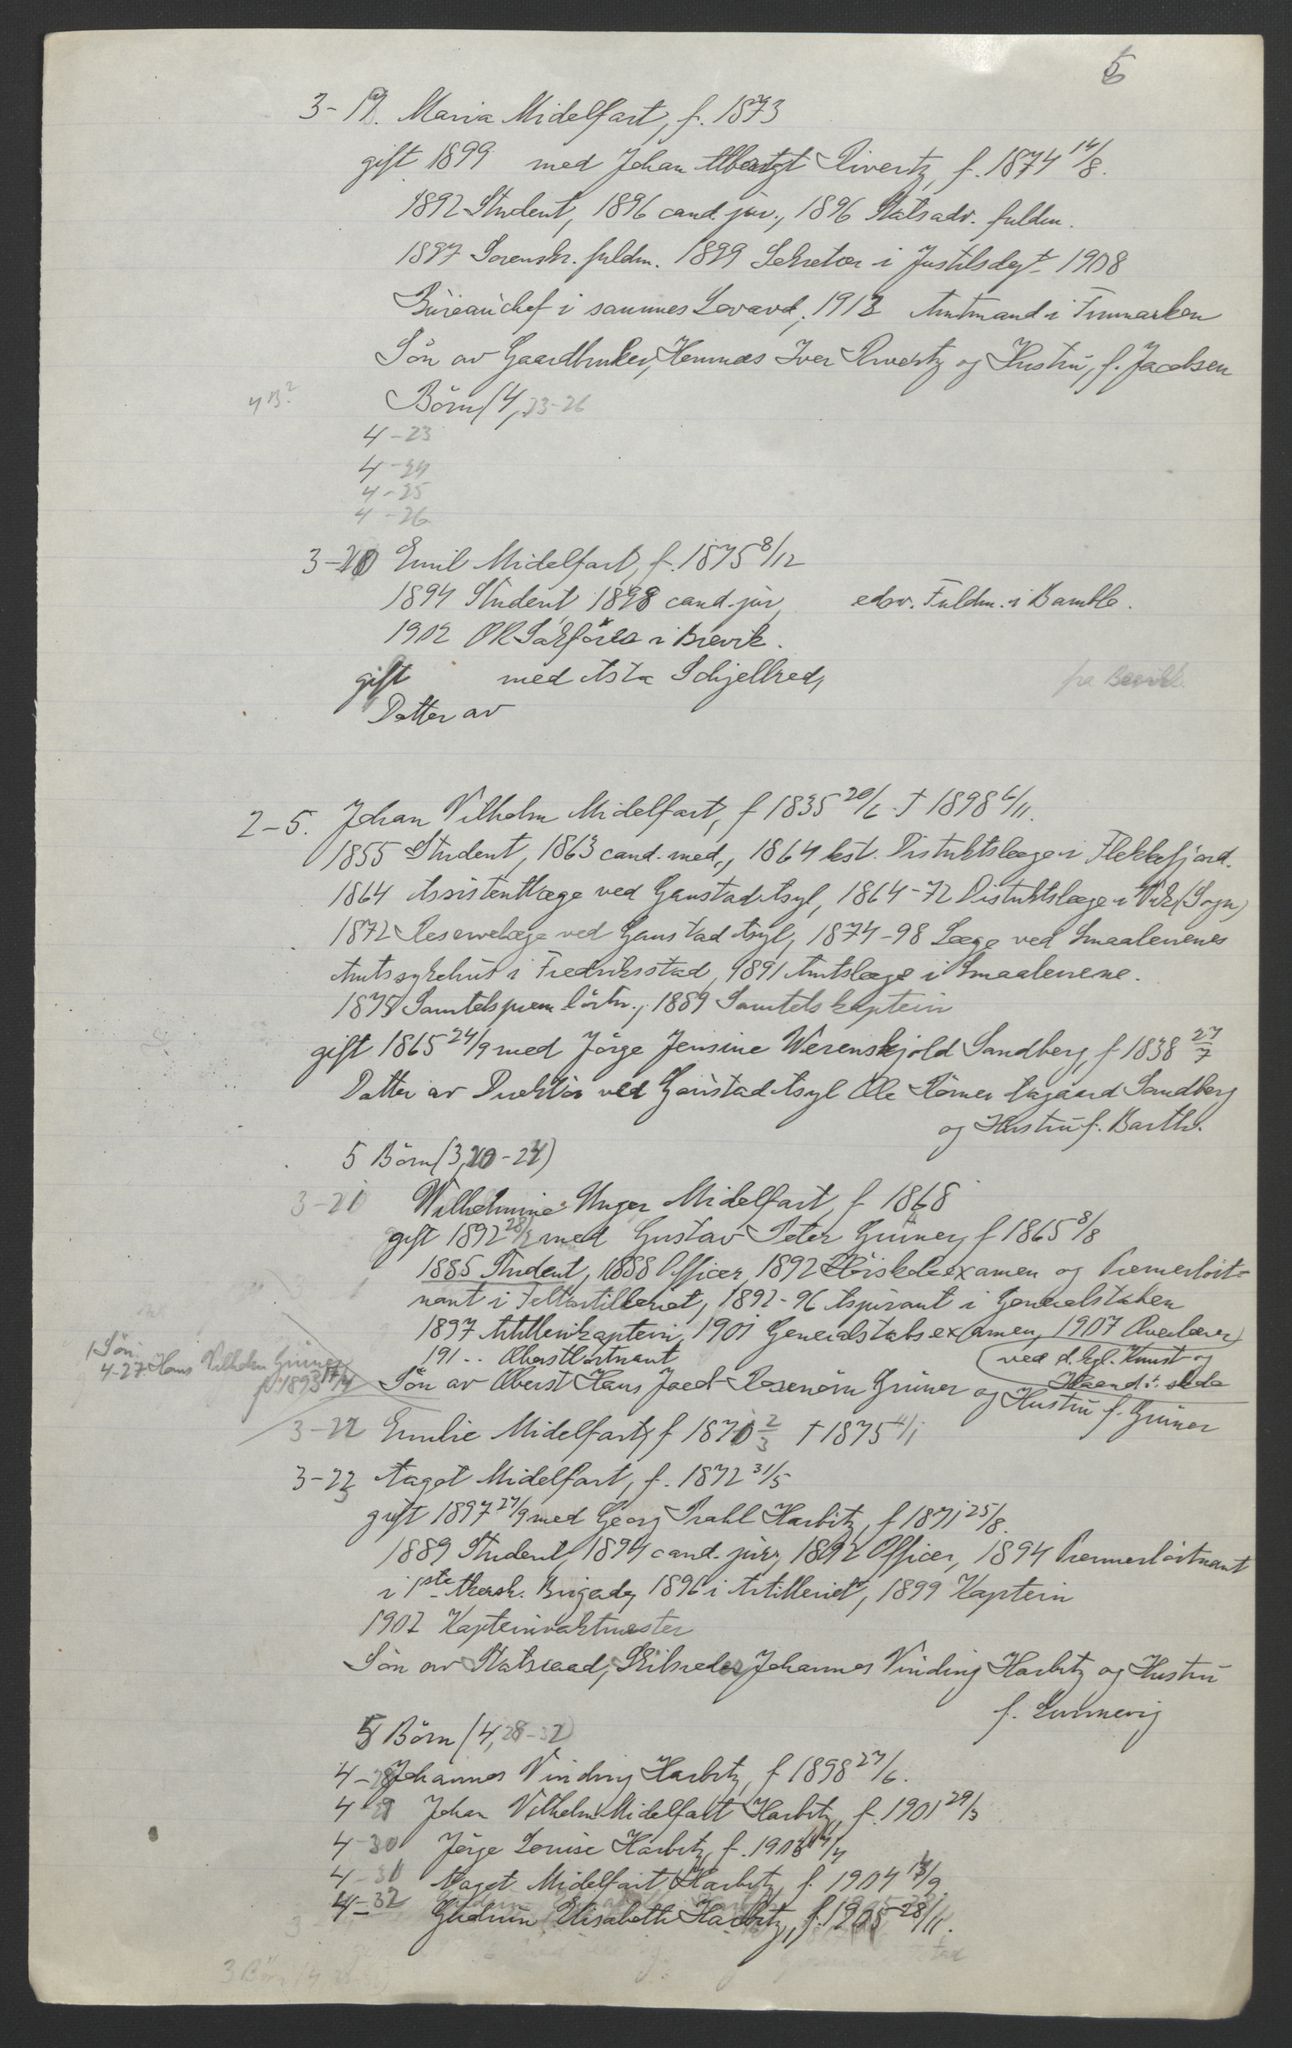 5
3-19. Maria Midelfart, f. 1873
gift 1899 med Johan Albertzt Rivertz, f. 1874 14/8.
1892 Student, 1896 cand. jur., 1896 Statsadv. fuldm.
1897 Sorenskr. fuldm. 1899 Sekretær i Justitsdept 1908
Büreauchef i sammes Lovavd., 1912 Amtmand i Finmarken
Sön av Gaardbruker, Hemnæs Iver Rivertz og Hustrü, f. Jacobsen
4 B?
Börn (4, 23-26
4-23
4-24
4-25
4-26
3-20 Emil Midelfart, f. 1875 8/12
1894 Student 1898 cand. jur, edsv. Fuldm. i Bamble.
1902 OR Sakförer i Brevik.
gift med Asta Schjelbred, fra Brevik
Datter av
2-5. Johan Vilhelm Midelfart, f 1835 20/6 † 1898 6/11.
1855 Student, 1863 cand. med., 1864 kst. Distriktslæge i Flekkefjord.
1864 Assistentlæge ved Gaustad Asyl, 1864-72 Distriktslæge i Vik (Sogn)
1872 Reservelæge ved Gaustad Asyl, 1874-98 Læge ved Smaalenenes
Amtssykehus i Fredriksstad, 1891 Amtslæge i Smaalenene.
1875 Sanitetsprem. löitn., 1889 Sanitetskaptein
gift 1865 24/9 med Jörge Jensine Werenskjold Sandberg, f 1838 27/7
Datter av Direktör ved Gaustad Asyl Ole Römer Aagaard Sandberg
og Hustrü f. Barth.
5 Börn (3, 20-24)
3-21 Wilhelmine Unger Midelfart, f 1868
gift 1892 28/ med Gustav Peter Grüner, f 1865 8/8
1885 Student, 1888 Officer, 1892 Höiskoleexamen og Premierlöit-
nant i Feltartilleriet, 1892-96 Aspirant i Generalstaben
1897 Artillerikaptein, 1901 Generalstabsexamen, 1907 Overlærer
ved d. kgl. Kunst og
Haandv. skole
191.. Oberstlöitnant
1 Sön.
4-27 Hans Vilhelm Grüner
f. 1893 17/4
Sön av Oberst Hans Jacob Rosenörn Grüner og Hustrü f. Grüner
3-22 Emilie Midelfart, f 1870 2/3 † 1875 4/1
3-23 Aagot Midelfart, f. 1872 31/5
gift 1897 27/9 med Georg Prahl Harbitz, f 1871 25/8.
1889 Student, 1894 cand. jur, 1892 Officer, 1894 Premierlöitnant
i 1ste Akersh. Brigade, 1896 i Artilleriet, 1899 Kaptein
1902 Kapteinvaktmester
Sön av Statsraad, Skibsreder Johannes Vinding Harbitz og Hustrü
f. Linnevig
5 Börn (4, 28-32)
4-28 Johannes Vinding Harbitz, f 1898 27/6.
4-29 Johan Vilhelm Midelfart Harbitz, f. 1901 29/3
4-30 Jörge Louise Harbitz, f. 1903 17/4
4-31 Aagot Midelfart Harbitz f. 1904 13/9
4-32 Gudrun Elisabeth Harbitz, f. 1905 28/11.
3 Börn (4